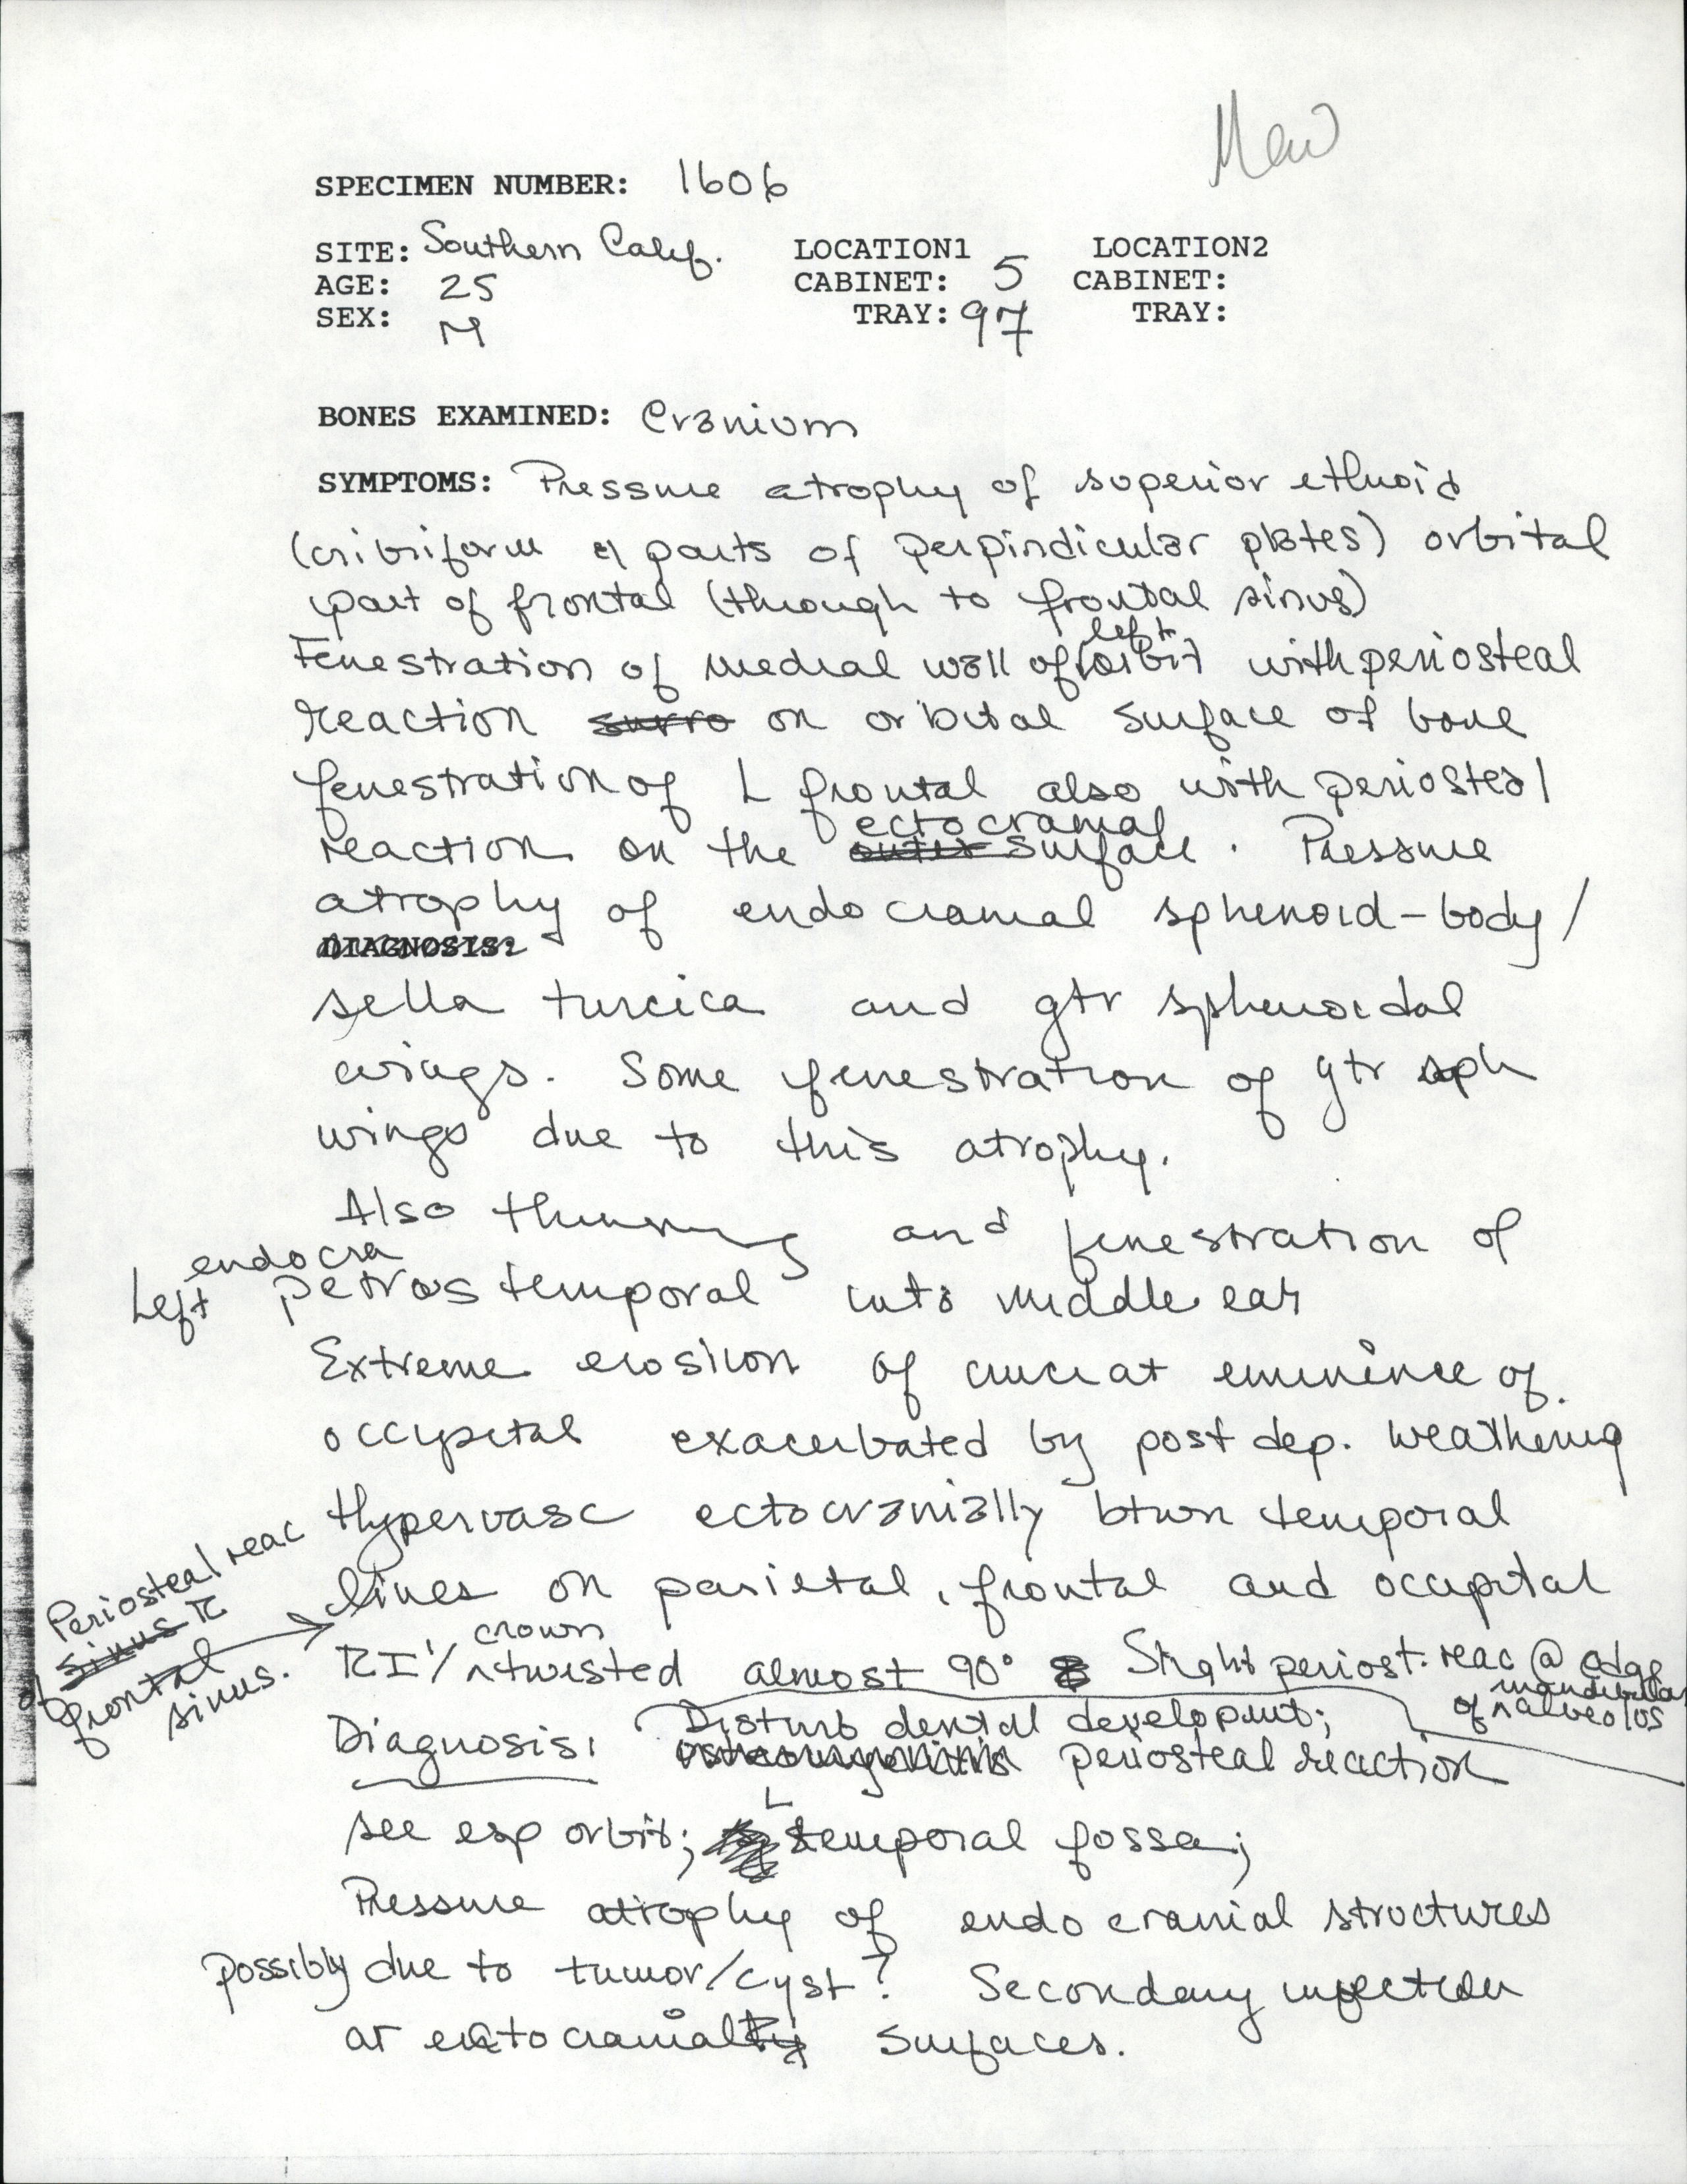 New
SPECIMEN NUMBER: 1606
SITE: Southern Calif. LOCATION1 LOCATION2
AGE: 25 CABINET: 5 CABINET:
SEX: M TRAY: 97 TRAY:
BONES EXAMINED: Cranium
SYMPTOMS: Pressure atrophy of superior ethmoid
(cribriform & parts of perpindicular plates) orbital
part of frontal (through to frontal sinus)
Fenestration of medial wall of left orbit with periosteal
reaction on orbital surface of bone
fenestration of L frontal also with periosteal
reaction on the ectocranial surface. Pressure
atrophy of endocranial sphenoid-body/
DIAGNOSIS:
sella turcica and gtr sphenoidal
wings. Some fenestration of gtr sph
wings due to this atrophy.
Also thinning and fenestration of
Left endocra petros temporal into middle ear
Extreme erosion of cruciat eminence of
occipital exacerbated by post dep. weathering
Hypervasc ectocranially btwn temporal
lines on parietal, frontal and occipital
Periosteal reac
sinus R
of frontal
sinus.
RI1/ crown twisted almost 90° Slight periost. reac @ edge
of mandibular alveolus
Diagnosis: Disturb dental developmt;
periosteal reaction
see esp orbit; L temporal fossa;
Pressure atrophy of endocranial structures
possibly due to tumor/cyst? Secondary infection
at ectocranial surfaces.